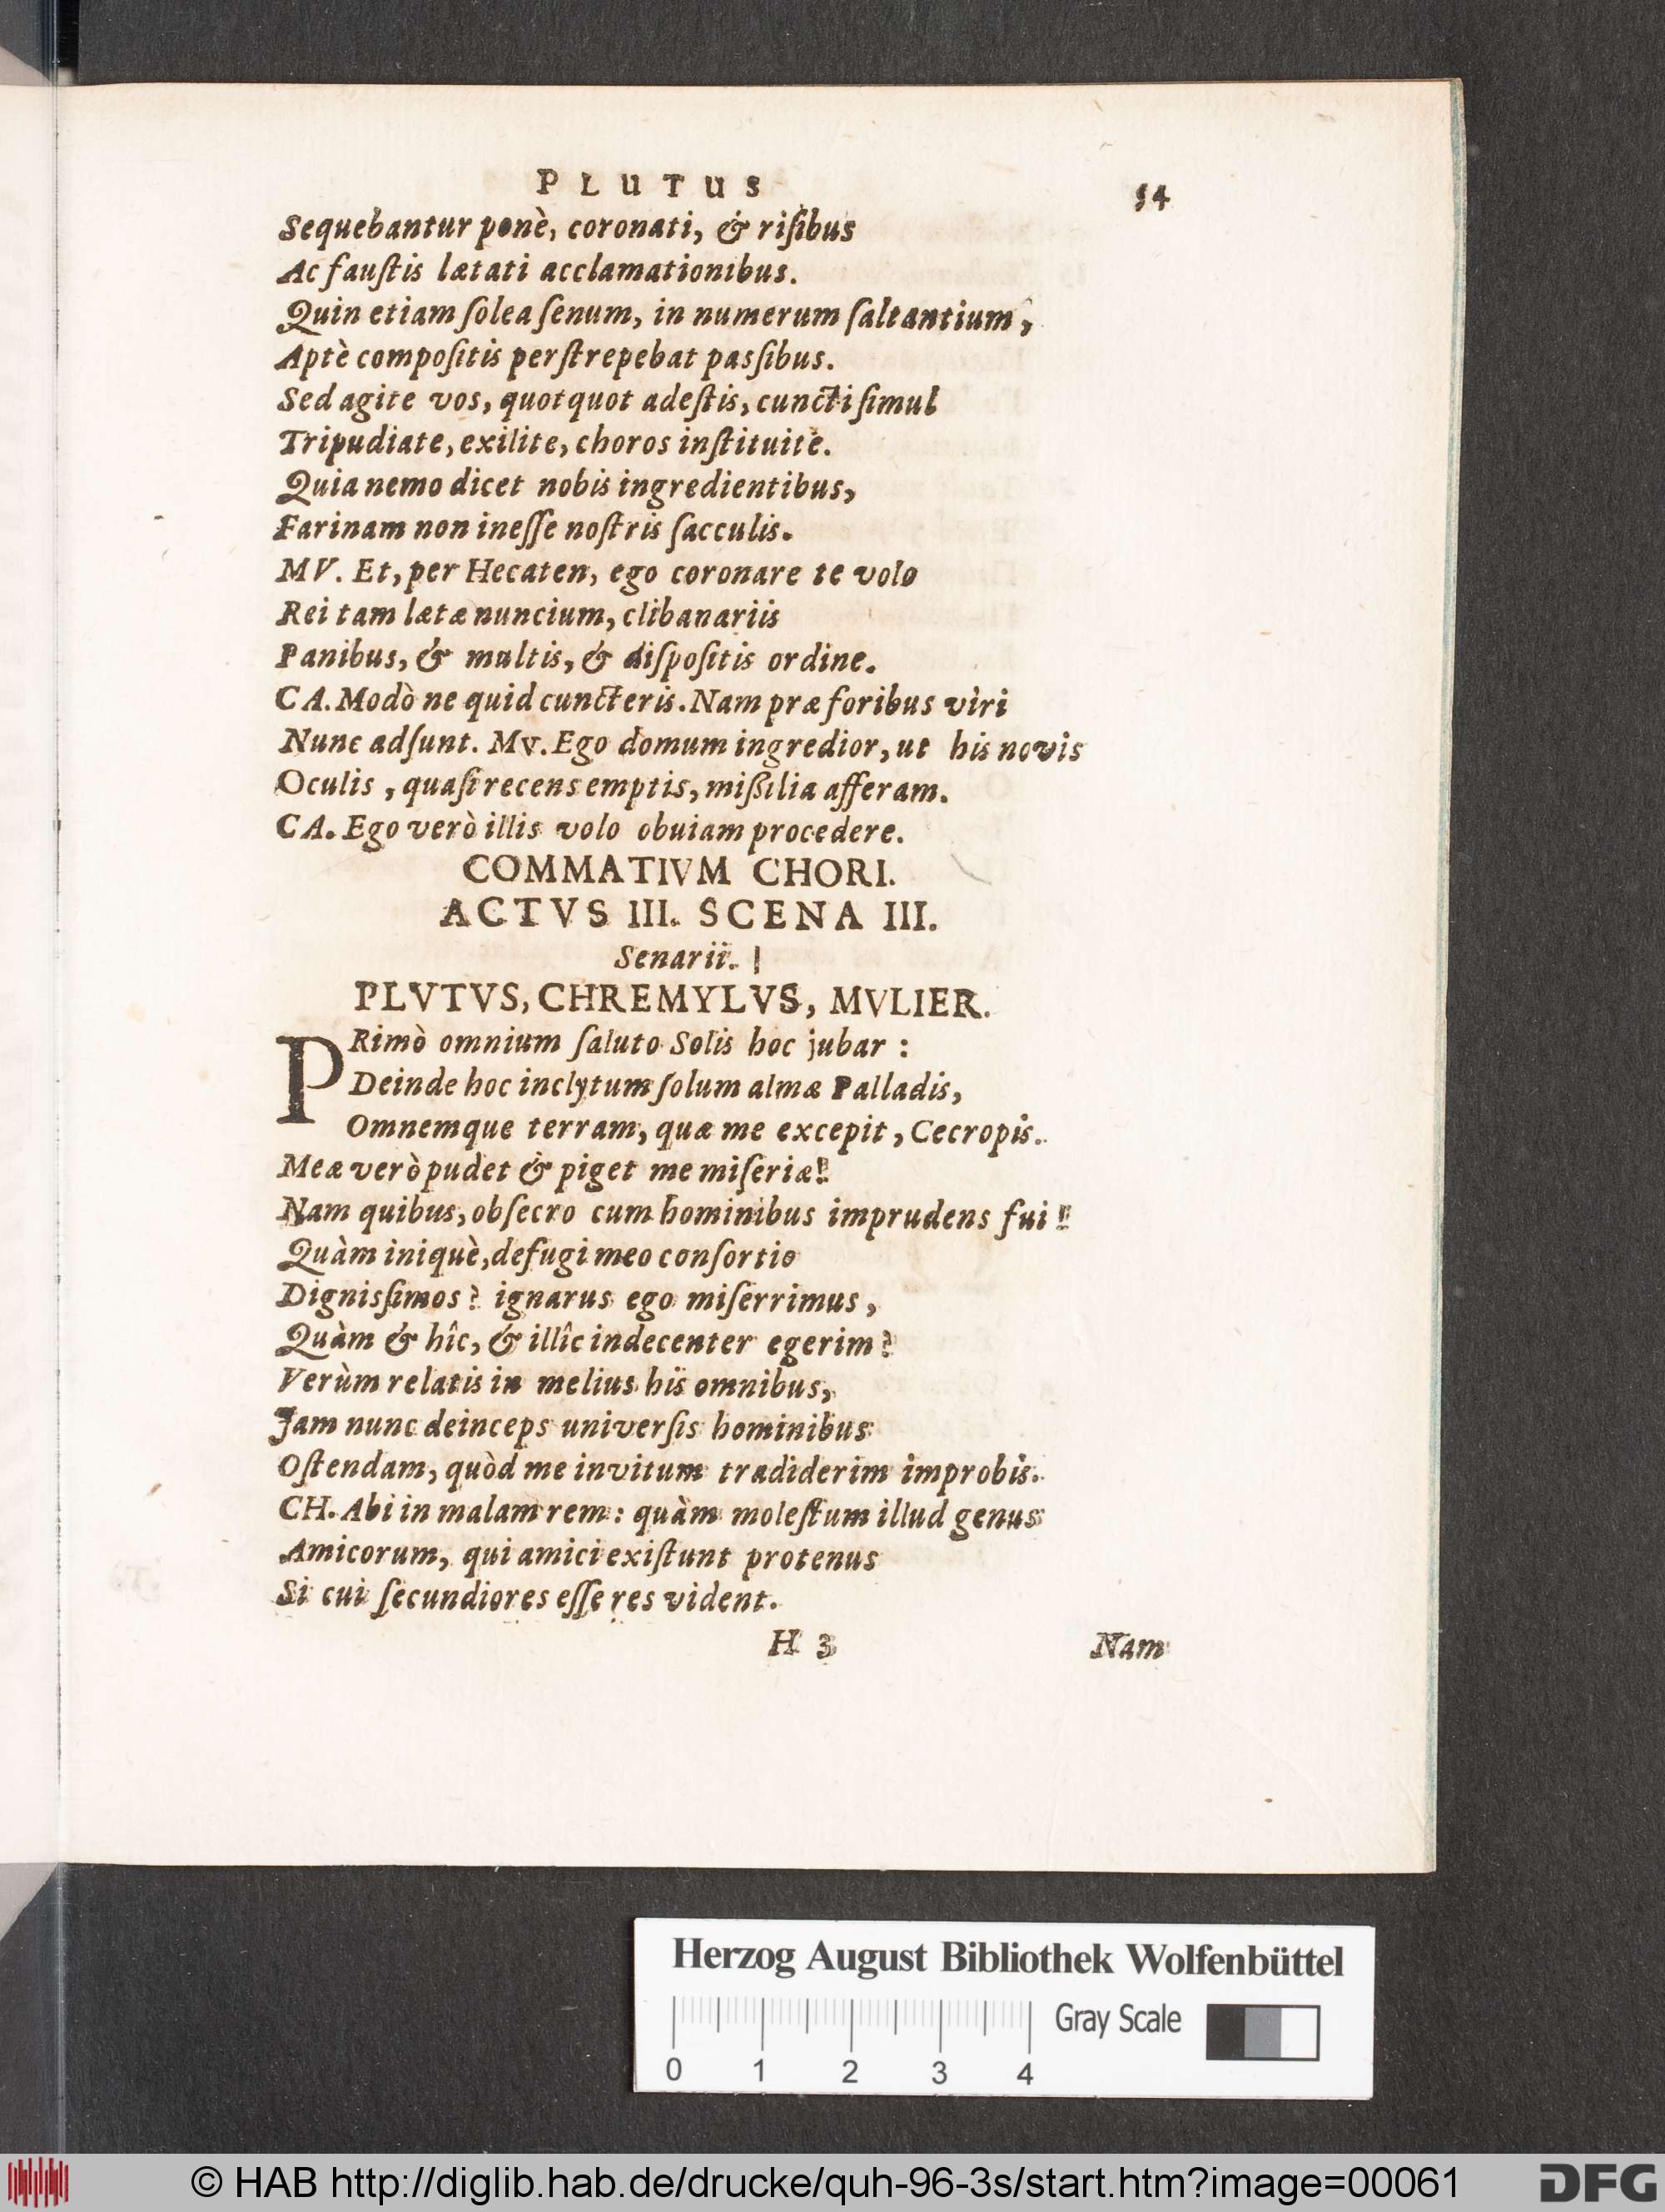 PLUTUS 54
Sequebantur ponè, coronati, & riſibus
Ac fauſtis lætati acclamationibus.
Quin etiam ſolea ſenum, in numerum ſaltantium,
Aptè compoſitis perſtrepebat pasſibus.
Sed agite vos, quotquot adeſtis, cuncti ſimul
Tripudiate, exilite, choros inſtituite.
Quia nemo dicet nobis ingredientibus,
Farinam non ineſſe noſtris ſacculis.
MV. Et, per Hecaten, ego coronare te volo
Rei tam lætæ nuncium, clibanariis
Panibus, & multis, & diſpoſitis ordine.
CA. Modò ne quid cuncteris. Nam præ foribus viri
Nunc adſunt. Mv. Ego domum ingredior, ut his novis
Oculis, quaſi recens emptis, mißilia afferam.
CA. Ego verò illis volo obuiam procedere.
COMMATIVM CHORI.
ACTVS III. SCENA III.
Senarii.
PLVTVS, CHREMYLVS, MVLIER.
PRimò omnium ſaluto Solis hoc jubar:
Deinde hoc inclytum ſolum almæ Palladis,
Omnemque terram, quæ me excepit, Cecropis.
Meæ verò pudet & piget me miſeriæ!
Nam quibus, obſecro cum hominibus imprudens fui!
Quàm iniquè, defugi meo conſortio
Dignisſimos? ignarus ego miſerrimus,
Quàm & hîc, & illîc indecenter egerim?
Verùm relatis in melius his omnibus,
Jam nunc deinceps univerſis hominibus
Oſtendam, quòd me invitum tradiderim improbis.
CH. Abi in malam rem: quàm moleſtum illud genus
Amicorum, qui amici exiſtunt protenus
Si cui ſecundiores eſſe res vident.
H 3 Nam
Herzog August Bibliothek Wolfenbüttel
Gray Scale
0 1 2 3 4
© HAB http://diglib.hab.de/drucke/quh-96-3s/start.htm?image=00061 DFG